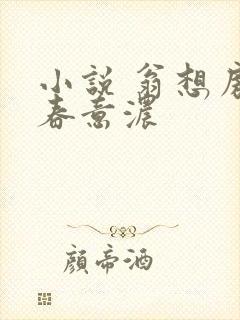 小説 翁想房
春意濃
顏帝酒